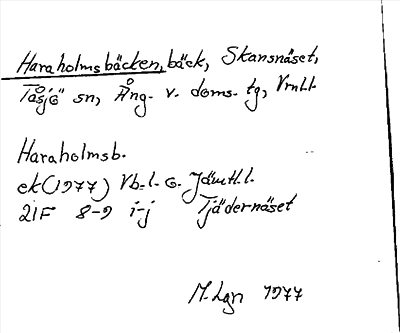 Haraholmsbäcken, bäck, Skansnäset,
Tåsjö sn, Ång. v. doms. tg, Vrnl.l.
Haraholmsb.
ek (1977) Vb.l. o. Jämtl.l.
21F 8-9 i-j Tjädernäset
M. Lgn 1977